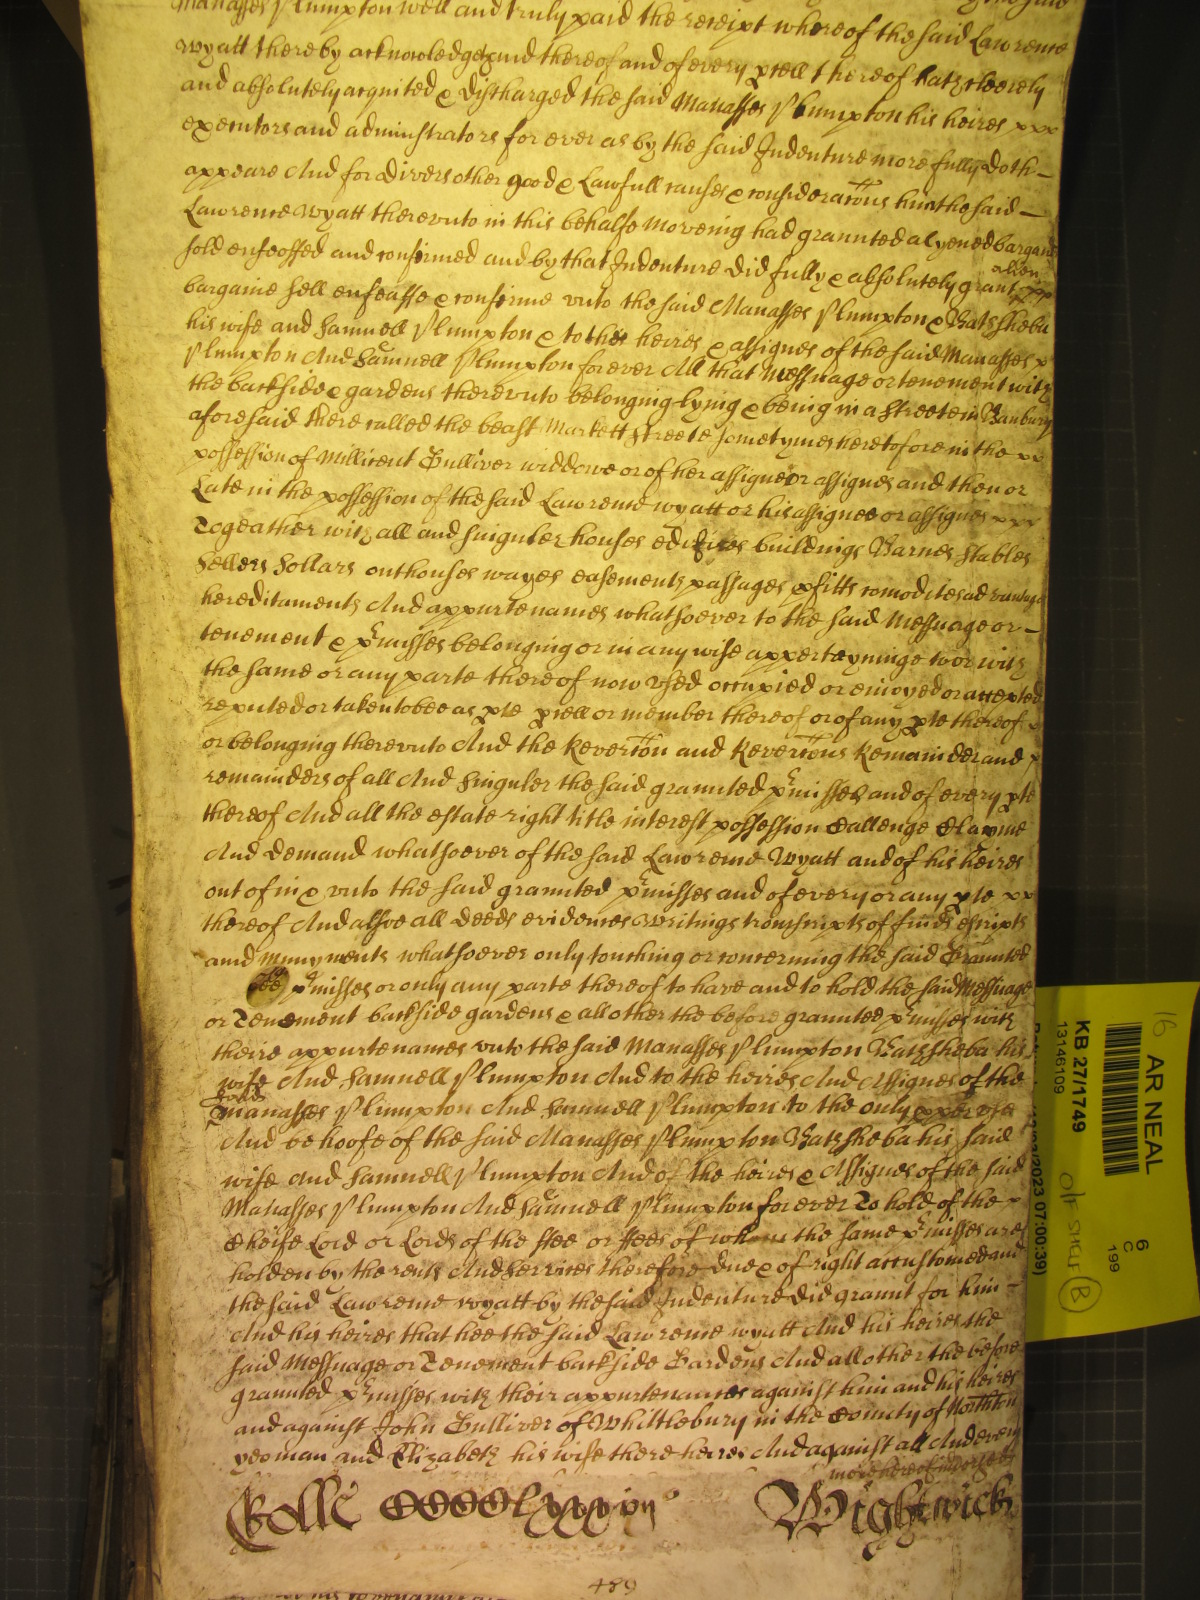 Manasses Plumpton well and truly paid the receipt whereof the said Lawrence
Wyatt thereby acknowledged and thereof and of every pcell thereof hath cleerely
and absolutely acquited & discharged the said Manasses Plumpton his heires xxx
executors and administrators for ever as by the said Indenture more fully doth
appeare And for divers other good & Lawfull causes & consideracons him the said
Lawrence Wyatt therevnto in this behalfe moveing had graunted alyened bargand
sold enfeoffed and confirmed and by that Indenture did fully & absolutely grant
alien
bargaine sell enfeoffe & confirme vnto the said Manasses Plumpton & Bathsheba
his wife and Samuell Plumpton & to the heires & assignes of the said Manasses
Plumpton And Samuell Plumpton forever All that Messuage or tenement with
the backside & gardens therevnto belonging lying & being in a streete in Banbury
aforesaid there called the beast Markett streete sometymes heretofore in the xx
possession of Millicent Gulliver widdowe or of her assignee or assignes and then or
Late in the possession of the said Lawrence Wyatt or his assignee or assignes xxx
Togeather with all and singuler houses edifices buildings Barnes stables
Sellers Sollars outhouses wayes easements passages pfitts comodites advantags
hereditaments And appurtenances whatsoever to the said Messuage or
tenement & pmisses belonging or in any wise apperteyninge to or with
the same or any parte thereof now vsed occupied or enioyed or accepted
reputed or taken to bee as pte pcell or member thereof or of any pte thereof
or belonging therevnto And the Revercon and Revercons Remainder and
remainders of all And singuler the said graunted pmisses and of every pte
thereof And all the estate right title interest possession Challenge Clayme
And demand whatsoever of the said Lawrence Wyatt and of his heires
out of in & vnto the said graunted pmisses and of every or any pte xx
thereof And alsoe all deeds evidences writings transcripts of fines escripts
and munyments whatsoever only touching or concerning the said Graunted
pmisses or only any parte thereof to have and to hold the said Messuage
or Tenement backside gardens & all other the before graunted pmisses with
theire appurtenances vnto the said Manasses Plumpton Bathsheba his
wife And Samuell Plumpton And to the heires And Assignes of the
said
Manasses Plumpton And Samuell Plumpton to the only pper vse
And behoofe of the said Manasses Plumpton Bathsheba his said
wife And Samuell Plumpton And of the heires & Assignes of the said
Manasses Plumpton And Samuell Plumpton for ever To hold of the
Cheife Lord or Lords of the ffee or ffees of whom the same pmisses are
holden by the rents And services therefore due & of right accustomed and
the said Lawrence Wyatt by the said Indenture did graunt for him
And his heires that hee the said Lawrence Wyatt And his heires the
said Messuage or Tenement backside Gardens And all other the before
graunted pmisses with their appurtenances against him and his heires
and against John Gulliver of Whittlebury in the County of Northton
yeoman and Elizabeth his wife there heires And against all And every
more hereof indorsed
Rolle CCCClxxxix
Wightwick
489
16
AR NEAL
6
C
199
KB 27/1749
13146109
2023 07:00:39)
B